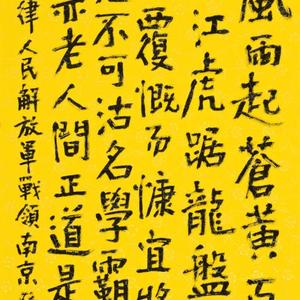 風雨起蒼黃百
江虎踞龍盤
覆慨而慷宜將
不可沽名學霸
亦老人間正道是
律人民解放軍戰領南京